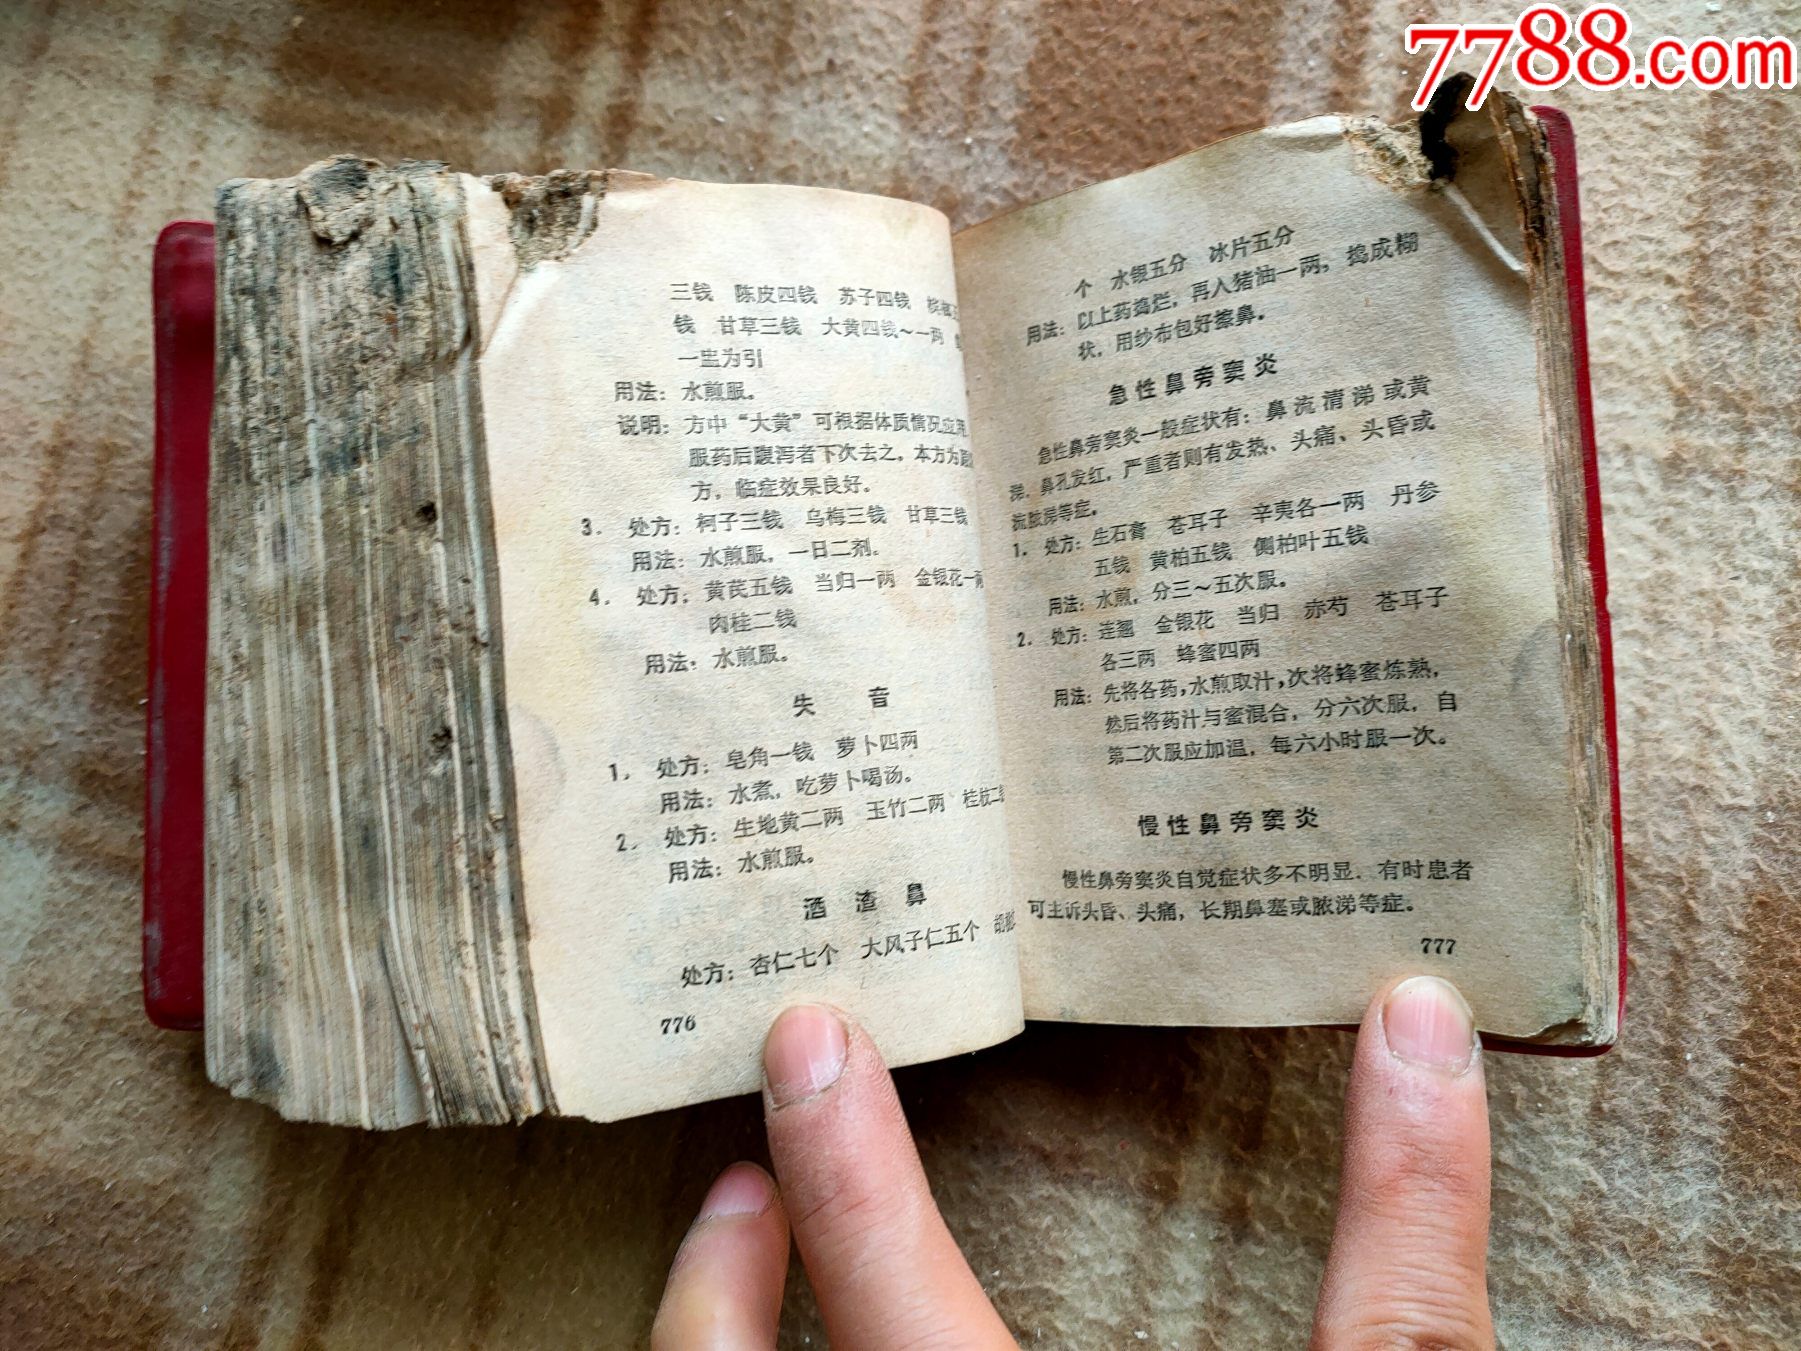 7788.com
三钱 陈皮四钱 苏子四钱
钱 甘草三钱 大黄四钱～一两
一盅为引
用法：水煎服。
说明：方中“大黄”可根据体质情况应用，
服药后腹泻者下次去之。本方为
方，临症效果良好。
3. 处方：柯子三钱 乌梅三钱 甘草三钱
用法：水煎服，一日二剂。
4. 处方：黄芪五钱 当归一两 金银花一两
肉桂二钱
用法：水煎服。
失 音
1. 处方：皂角一钱 萝卜四两
用法：水煮，吃萝卜喝汤。
2. 处方：生地黄二两 玉竹二两 桂枝二
用法：水煎服。
酒渣鼻
处方：杏仁七个 大风子仁五个 胡
776
个 水银五分 冰片五分
用法：以上药捣烂，再入猪油一两，捣成糊
状，用纱布包好擦鼻。
急性鼻旁窦炎
急性鼻旁窦炎一般症状有：鼻流清涕或黄
涕，鼻孔发红，严重者则有发热、头痛、头昏或
流脓涕等症。
1. 处方：生石膏 苍耳子 辛夷各一两 丹参
五钱 黄柏五钱 侧柏叶五钱
用法：水煎，分三～五次服。
2. 处方：连翘 金银花 当归 赤芍 苍耳子
各三两 蜂蜜四两
用法：先将各药，水煎取汁，次将蜂蜜炼熟，
然后将药汁与蜜混合，分六次服，自
第二次服应加温，每六小时服一次。
慢性鼻旁窦炎
慢性鼻旁窦炎自觉症状多不明显，有时患者
可主诉头昏、头痛，长期鼻塞或脓涕等症。
777